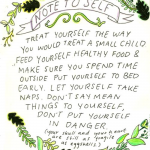 NOTE TO SELF
TREAT YOURSELF THE WAY
YOU WOULD TREAT A SMALL CHILD.
FEED YOURSELF HEALTHY FOOD &
MAKE SURE YOU SPEND TIME
OUTSIDE. PUT YOURSELF TO BED
EARLY. LET YOURSELF TAKE
NAPS. DON'T SAY MEAN
THINGS TO YOURSELF,
DON'T PUT YOURSELF
IN DANGER
(your skull and your heart
are still as fragile
as eggshells.)